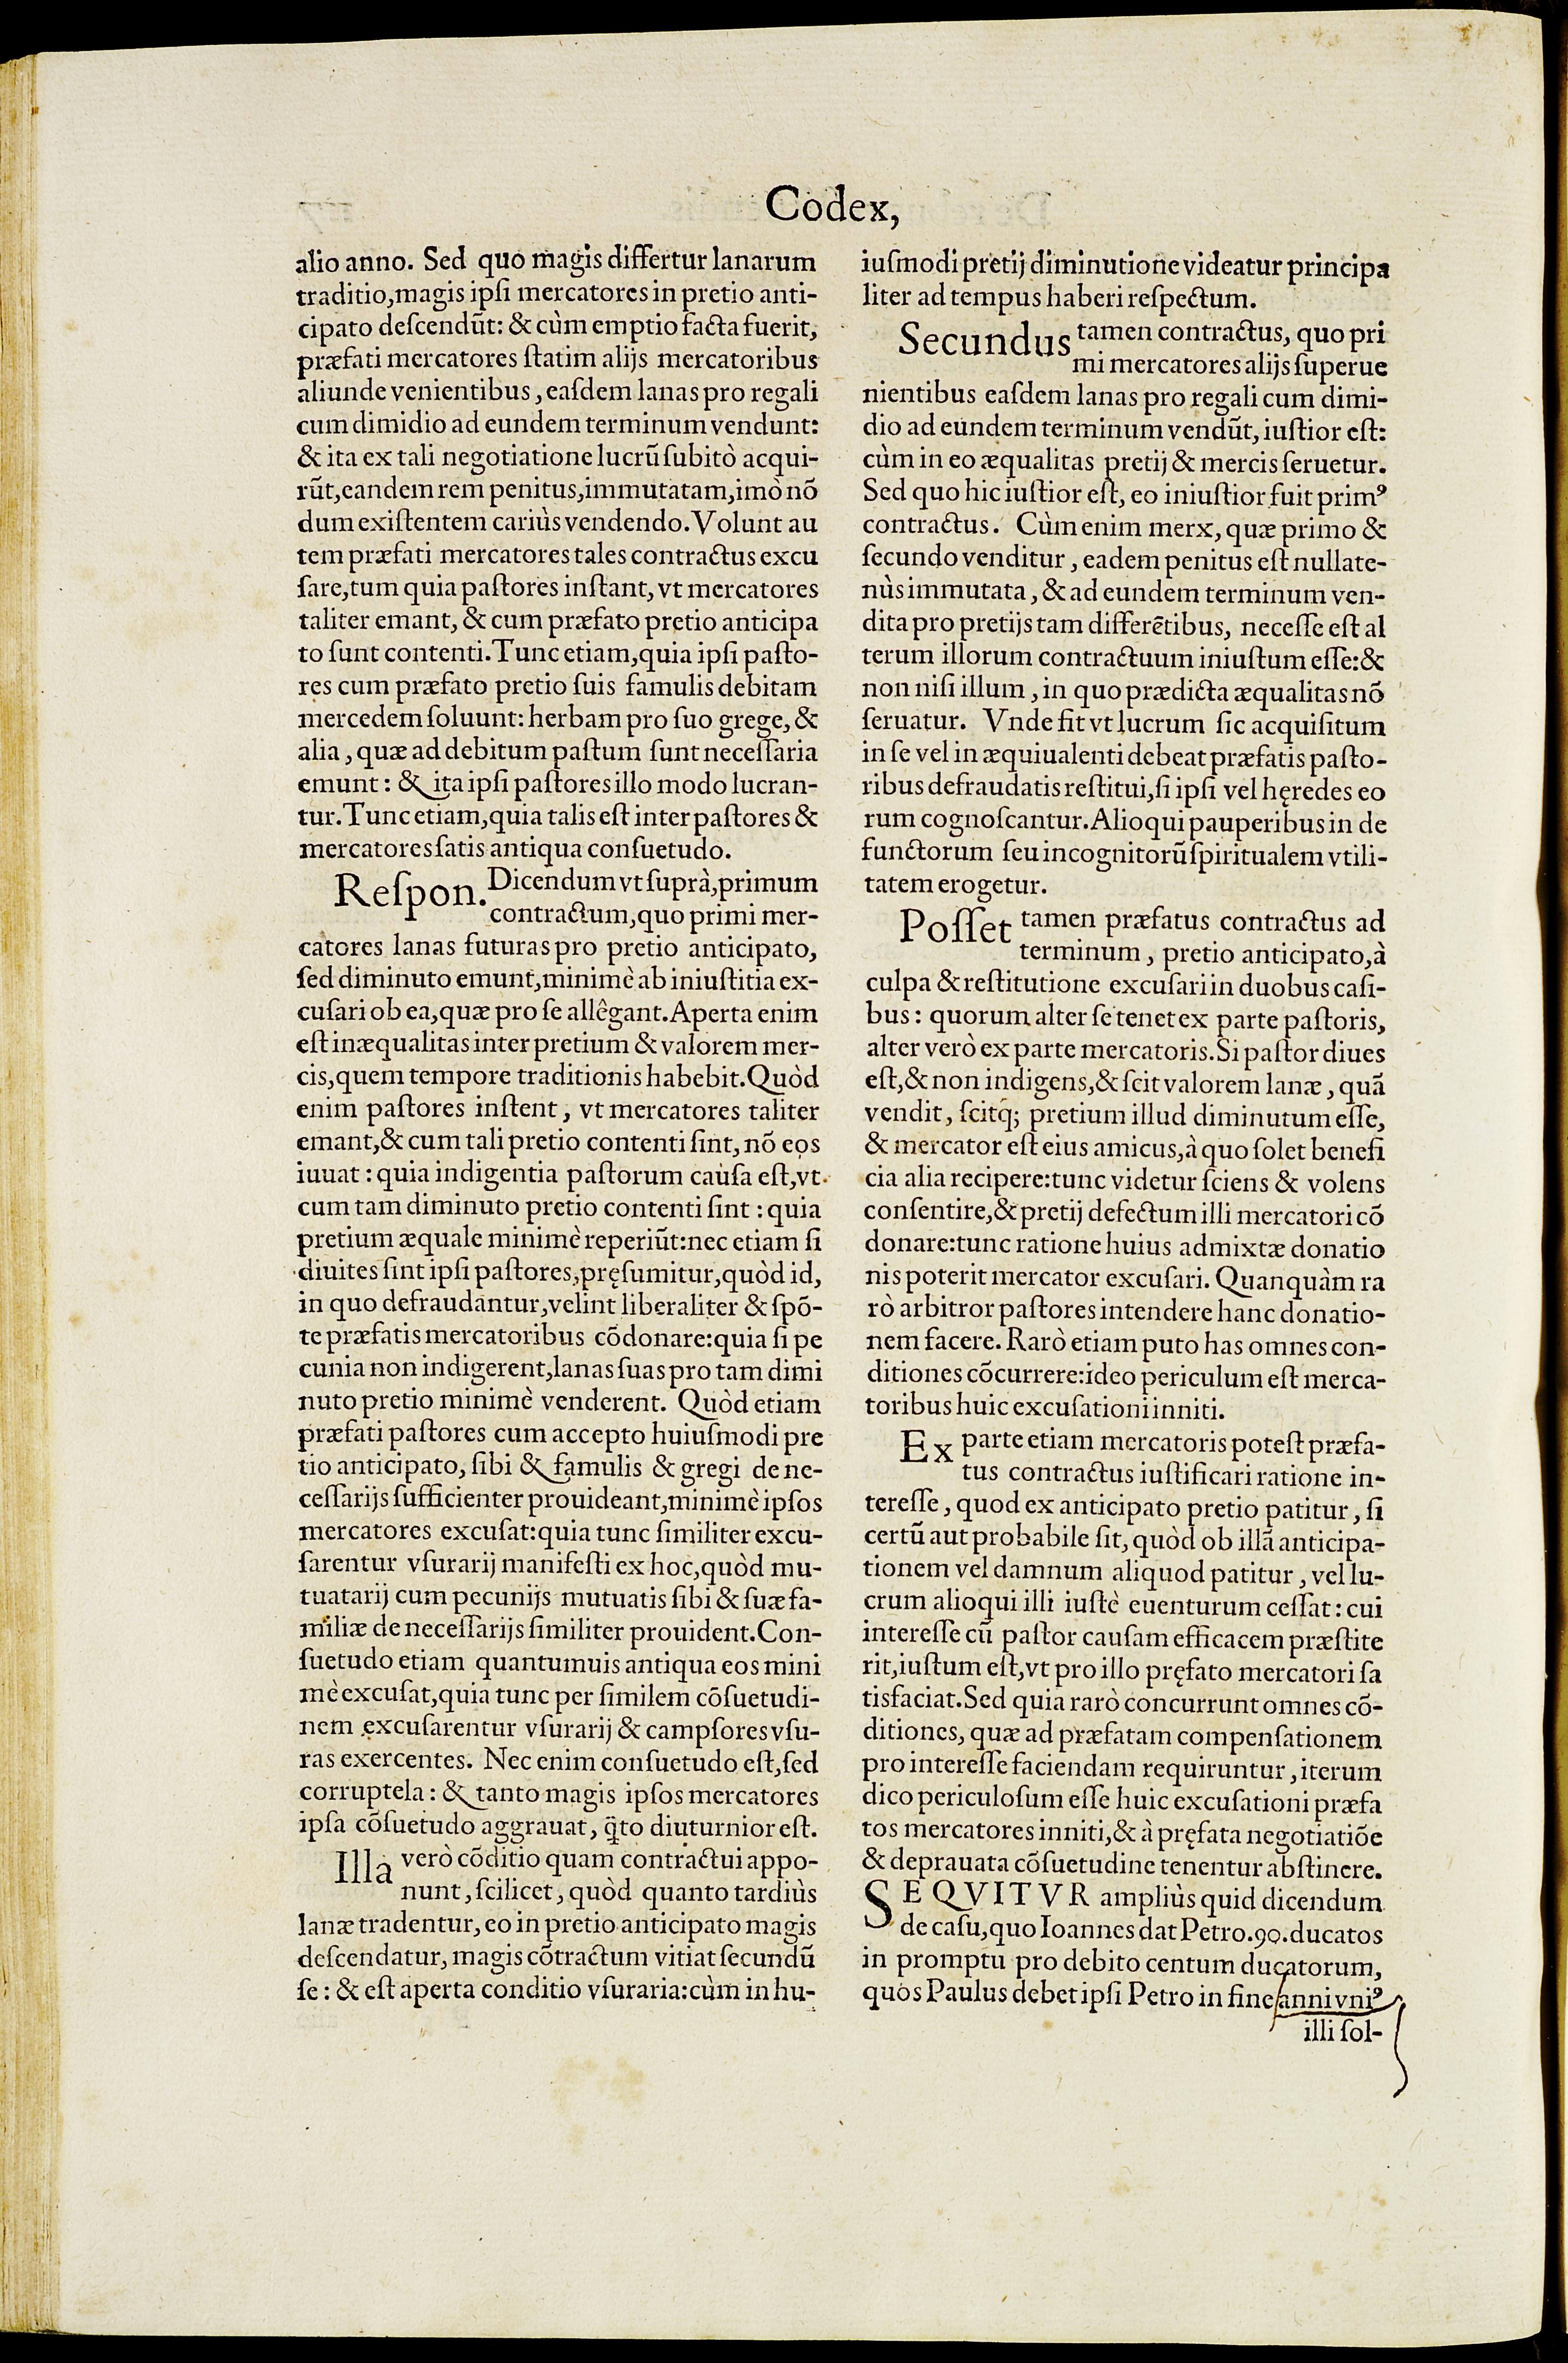 Codex,
alio anno. Sed quo magis differtur lanarum
traditio, magis ipſi mercatores in pretio anti-
cipato deſcendūt: & cùm emptio facta fuerit,
præfati mercatores ſtatim alijs mercatoribus
aliunde venientibus, eaſdem lanas pro regali
cum dimidio ad eundem terminum vendunt:
& ita ex tali negotiatione lucrū ſubitò acqui-
rūt, eandem rem penitus, immutatam, imò nō
dum exiſtentem cariùs vendendo. Volunt au
tem præfati mercatores tales contractus excu
ſare, tum quia paſtores inſtant, vt mercatores
taliter emant, & cum præfato pretio anticipa
to ſunt contenti. Tunc etiam, quia ipſi paſto-
res cum præfato pretio ſuis famulis debitam
mercedem ſoluunt: herbam pro ſuo grege, &
alia, quæ ad debitum paſtum ſunt neceſſaria
emunt: & ita ipſi paſtores illo modo lucran-
tur. Tunc etiam, quia talis eſt inter paſtores &
mercatores ſatis antiqua conſuetudo.
Reſpon. Dicendum vt ſuprà, primum
contractum, quo primi mer-
catores lanas futuras pro pretio anticipato,
ſed diminuto emunt, minimè ab iniuſtitia ex-
cuſari ob ea, quæ pro ſe allêgant. Aperta enim
eſt inæqualitas inter pretium & valorem mer-
cis, quem tempore traditionis habebit. Quòd
enim paſtores inſtent, vt mercatores taliter
emant, & cum tali pretio contenti ſint, nō eos
iuuat: quia indigentia paſtorum cauſa eſt, vt
cum tam diminuto pretio contenti ſint: quia
pretium æquale minimè reperiūt: nec etiam ſi
diuites ſint ipſi paſtores, pręſumitur, quòd id,
in quo defraudantur, velint liberaliter & ſpō-
te præfatis mercatoribus cōdonare: quia ſi pe
cunia non indigerent, lanas ſuas pro tam dimi
nuto pretio minimè venderent. Quòd etiam
præfati paſtores cum accepto huiuſmodi pre
tio anticipato, ſibi & famulis & gregi de ne-
ceſſarijs ſufficienter prouideant, minimè ipſos
mercatores excuſat: quia tunc ſimiliter excu-
ſarentur vſurarij manifeſti ex hoc, quòd mu-
tuatarij cum pecunijs mutuatis ſibi & ſuæ fa-
miliæ de neceſſarijs ſimiliter prouident. Con-
ſuetudo etiam quantumuis antiqua eos mini
mè excuſat, quia tunc per ſimilem cōſuetudi-
nem excuſarentur vſurarij & campſores vſu-
ras exercentes. Nec enim conſuetudo eſt, ſed
corruptela: & tanto magis ipſos mercatores
ipſa cōſuetudo aggrauat, q̄to diuturnior eſt.
Illa verò cōditio quam contractui appo-
nunt, ſcilicet, quòd quanto tardiùs
lanæ tradentur, eo in pretio anticipato magis
deſcendatur, magis cōtractum vitiat ſecundū
ſe: & eſt aperta conditio vſuraria: cùm in hu-
iuſmodi pretij diminutione videatur principa
liter ad tempus haberi reſpectum.
Secundus tamen contractus, quo pri
mi mercatores alijs ſuperue
nientibus eaſdem lanas pro regali cum dimi-
dio ad eundem terminum vendūt, iuſtior eſt:
cùm in eo æqualitas pretij & mercis ſeruetur.
Sed quo hic iuſtior eſt, eo iniuſtior fuit primꝰ
contractus. Cùm enim merx, quæ primo &
ſecundo venditur, eadem penitus eſt nullate-
nùs immutata, & ad eundem terminum ven-
dita pro pretijs tam differētibus, neceſſe eſt al
terum illorum contractuum iniuſtum eſſe: &
non niſi illum, in quo prædicta æqualitas nō
ſeruatur. Vnde fit vt lucrum ſic acquiſitum
in ſe vel in æquiualenti debeat præfatis paſto-
ribus defraudatis reſtitui, ſi ipſi vel hęredes eo
rum cognoſcantur. Alioqui pauperibus in de
functorum ſeu incognitorū ſpiritualem vtili-
tatem erogetur.
Poſſet tamen præfatus contractus ad
terminum, pretio anticipato, à
culpa & reſtitutione excuſari in duobus caſi-
bus: quorum alter ſe tenet ex parte paſtoris,
alter verò ex parte mercatoris. Si paſtor diues
eſt, & non indigens, & ſcit valorem lanæ, quā
vendit, ſcitq̃; pretium illud diminutum eſſe,
& mercator eſt eius amicus, à quo ſolet benefi
cia alia recipere: tunc videtur ſciens & volens
conſentire, & pretij defectum illi mercatori cō
donare: tunc ratione huius admixtæ donatio
nis poterit mercator excuſari. Quanquàm ra
rò arbitror paſtores intendere hanc donatio-
nem facere. Rarò etiam puto has omnes con-
ditiones cōcurrere: ideo periculum eſt merca-
toribus huic excuſationi inniti.
Ex parte etiam mercatoris poteſt præfa-
tus contractus iuſtificari ratione in-
tereſſe, quod ex anticipato pretio patitur, ſi
certū aut probabile ſit, quòd ob illā anticipa-
tionem vel damnum aliquod patitur, vel lu-
crum alioqui illi iuſtè euenturum ceſſat: cui
intereſſe cū paſtor cauſam efficacem præſtite
rit, iuſtum eſt, vt pro illo pręfato mercatori ſa
tisfaciat. Sed quia rarò concurrunt omnes cō-
ditiones, quæ ad præfatam compenſationem
pro intereſſe faciendam requiruntur, iterum
dico periculoſum eſſe huic excuſationi præfa
tos mercatores inniti, & à pręfata negotiatiōe
& deprauata cōſuetudine tenentur abſtinere.
SEQVITVR ampliùs quid dicendum
de caſu, quo Ioannes dat Petro.90.ducatos
in promptu pro debito centum ducatorum,
quos Paulus debet ipſi Petro in fine anni vniꝰ
illi ſol-